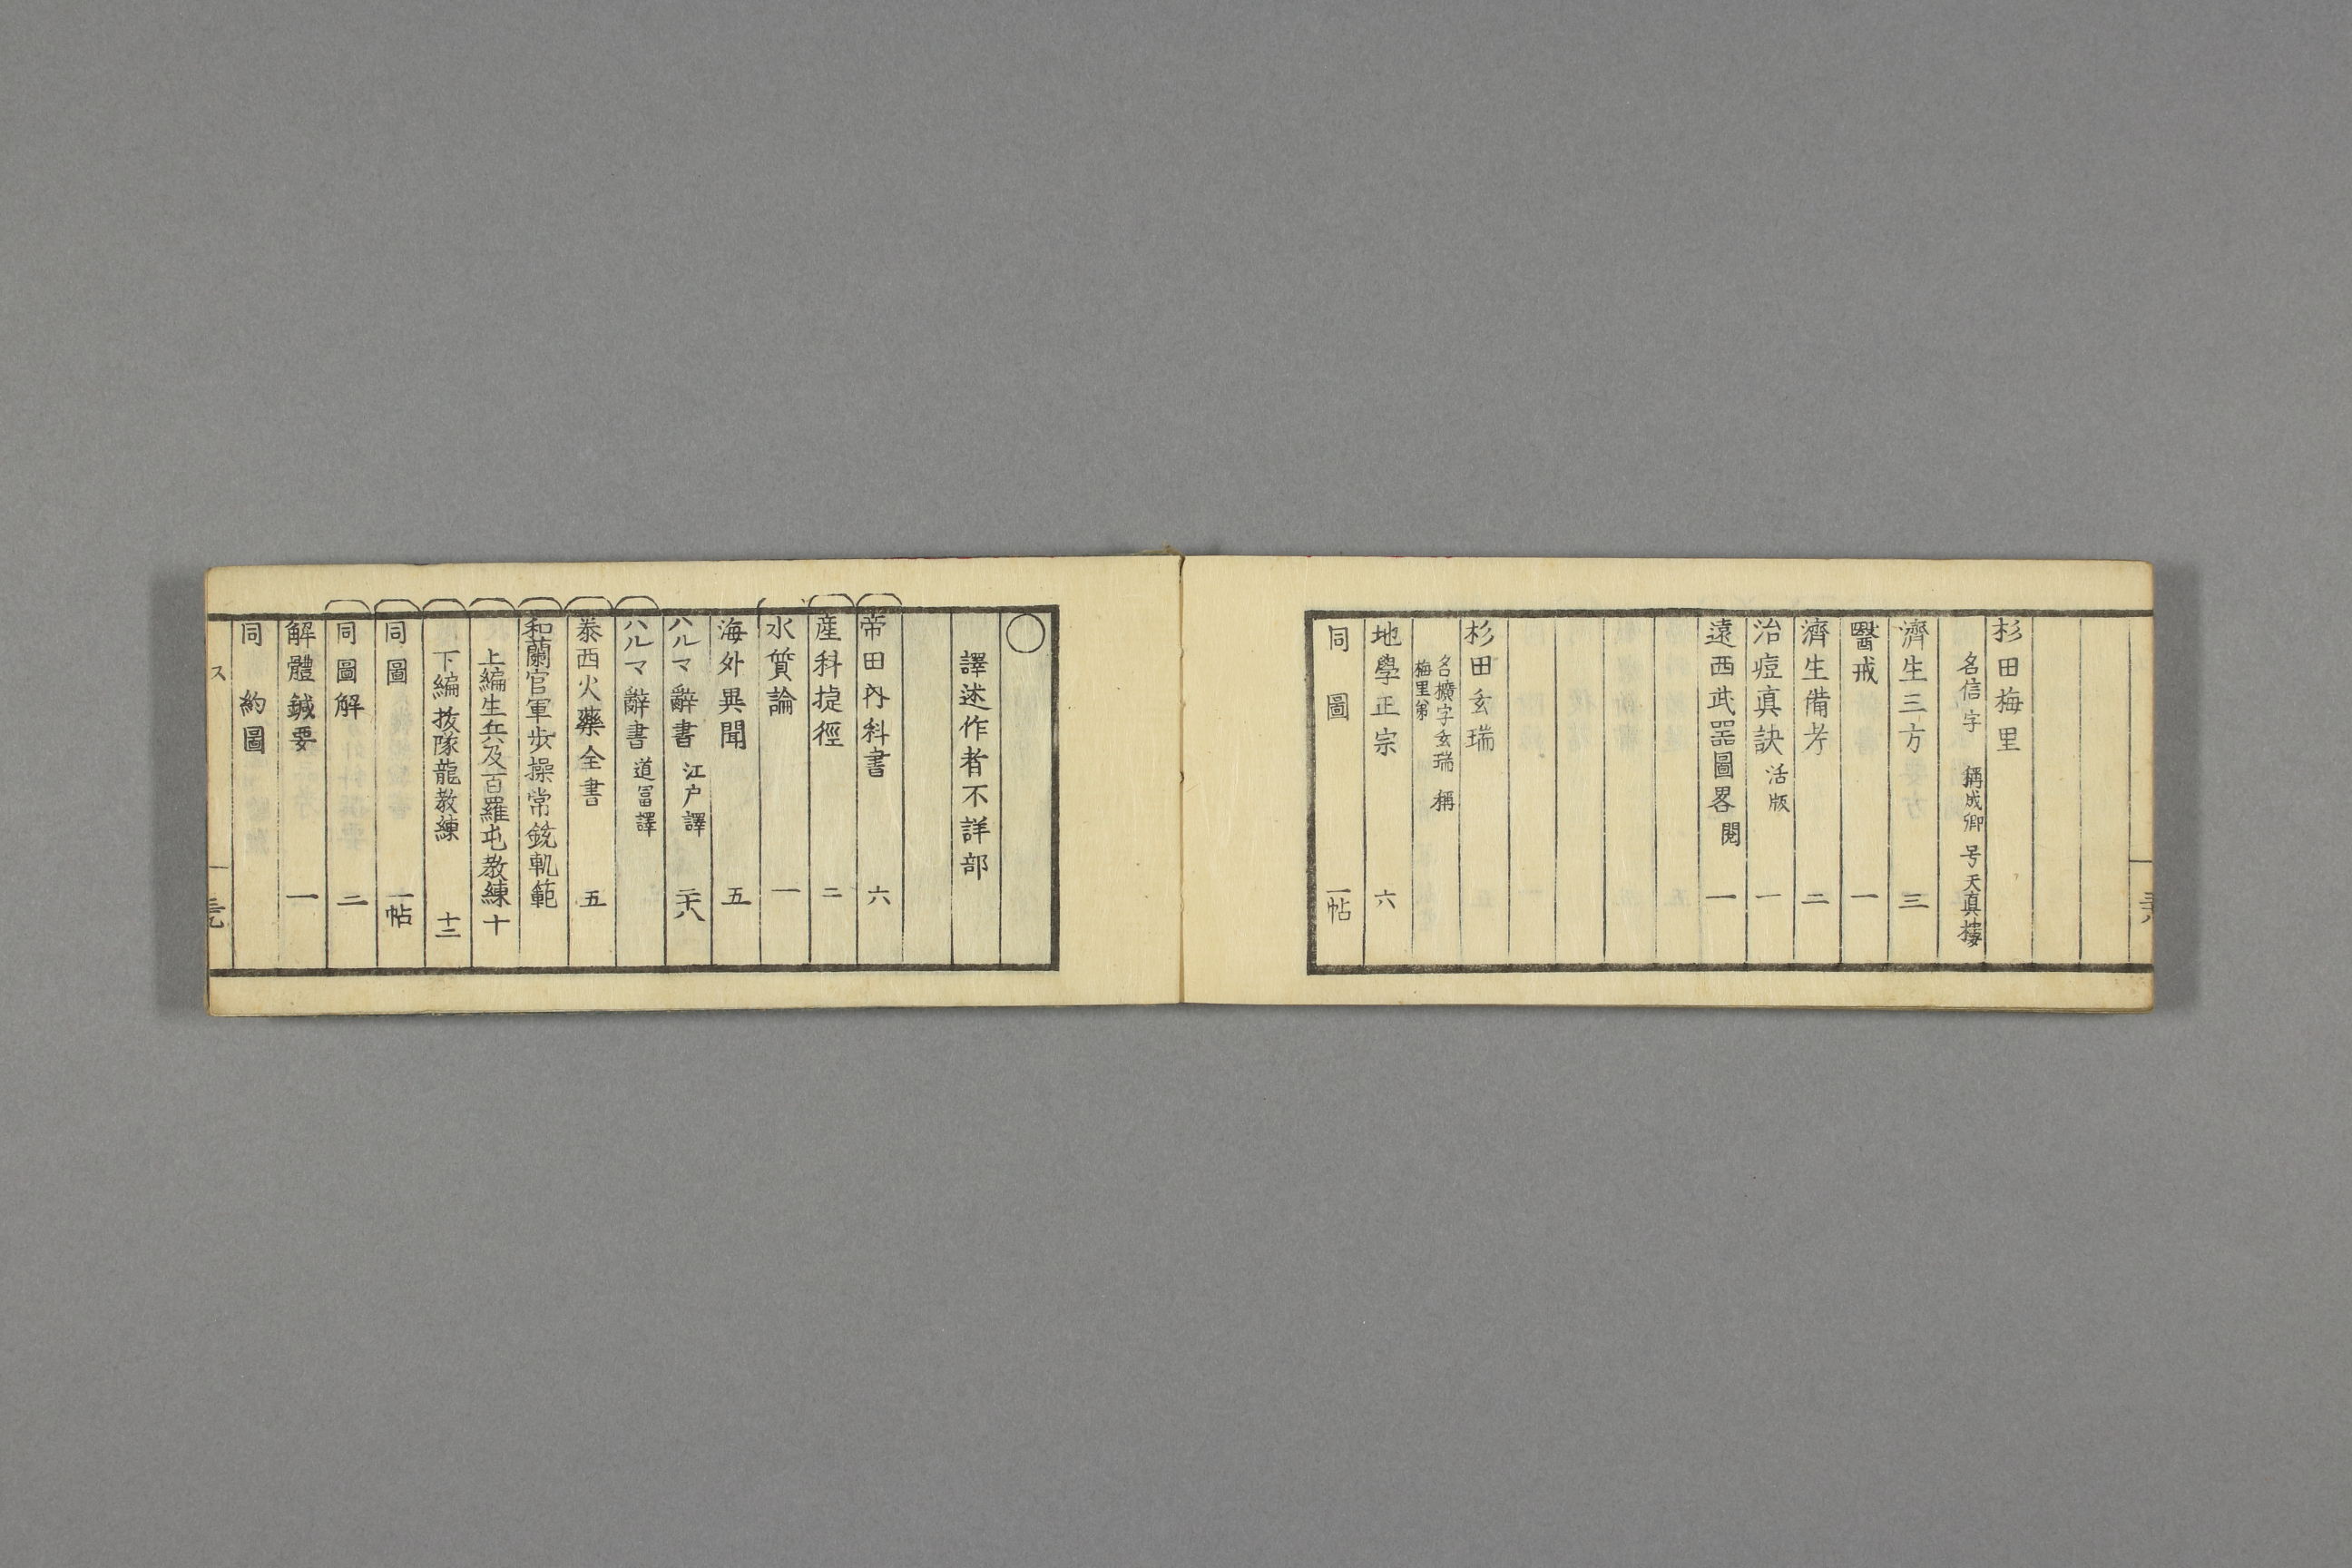 杉田梅里
名信 字 稱成卿 号天真樓
濟生三方 三
醫戒 一
濟生備考 二
治痘真訣 活版 一
遠西武器圖畧 閲 一
杉田玄瑞
名擴字玄瑞 稱
梅里弟
地學正宗 六
同 圖 一帖
○
譯述作者不詳部
帝田內科書 六
産科捷徑 二
水質論 一
海外異聞 五
ハルマ辭書 江戸譯
ハルマ辭書 道冨譯
泰西火藥全書 五
和蘭官軍歩操常銃軌範
上編生兵及百羅屯教練 十
下編 拔隊龍教練 十二
同圖 一帖
同圖解 二
解體鍼要 一
同 約圖
ス